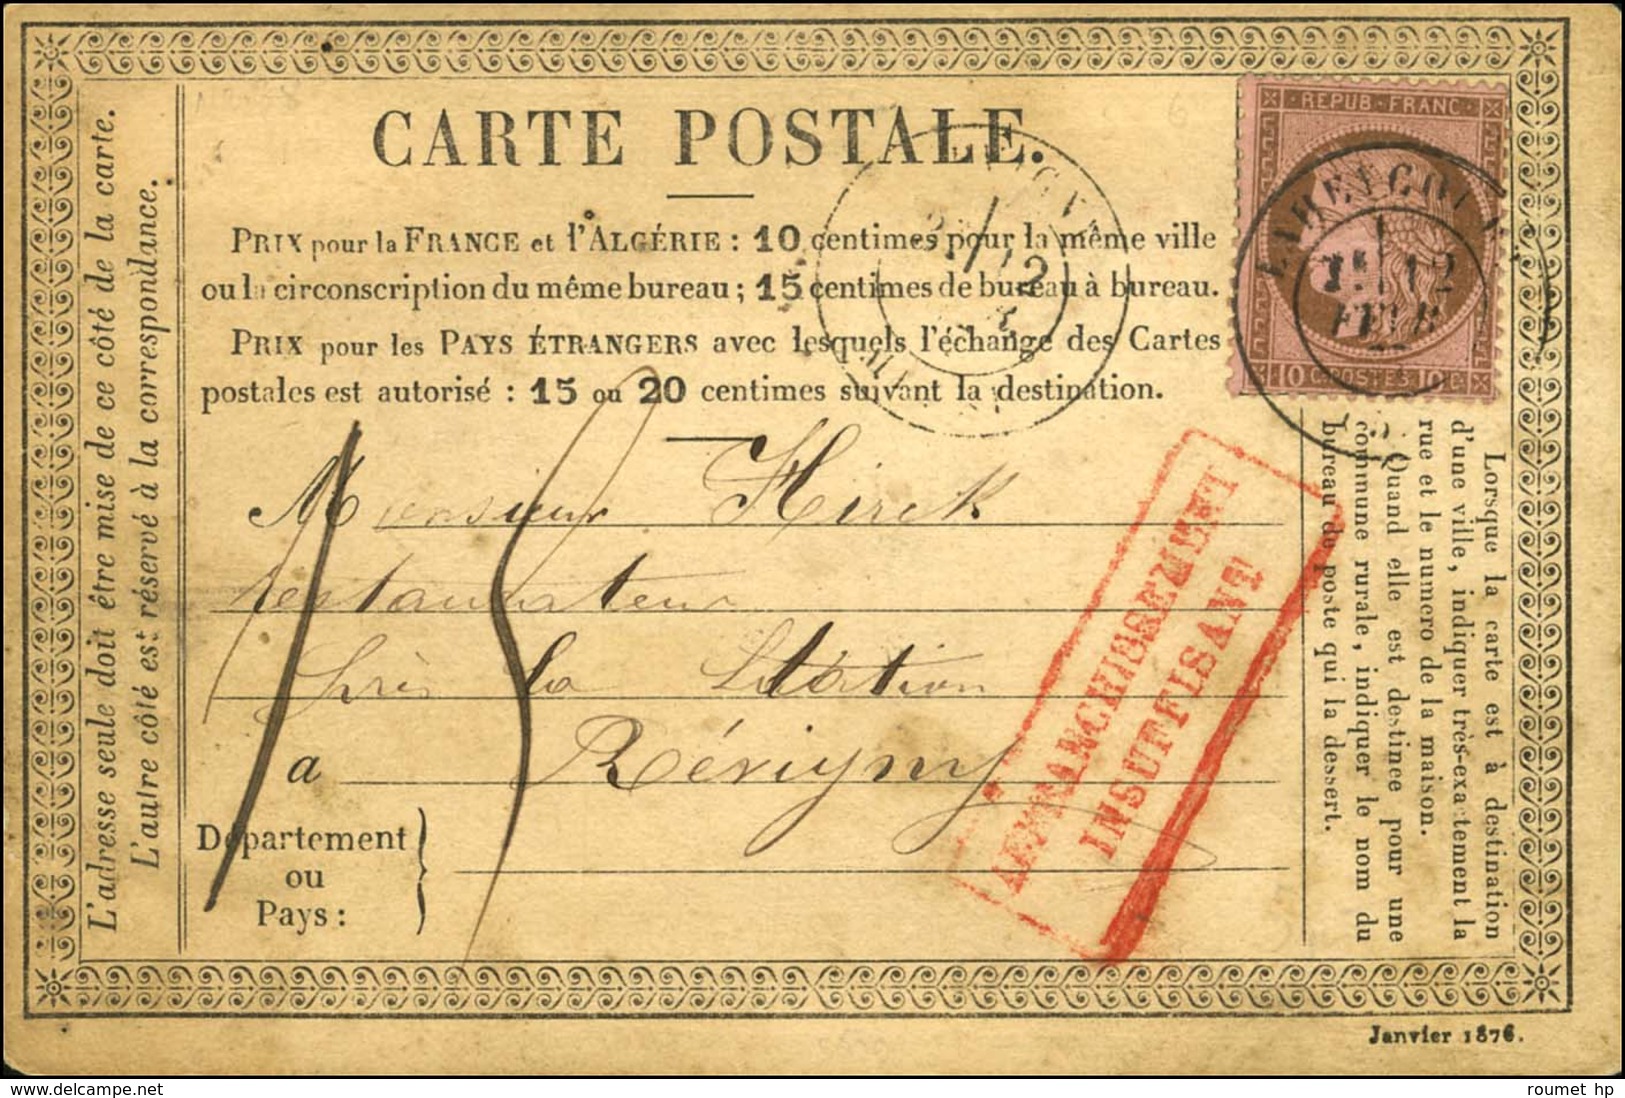 CARTE POSTALE.
PRIX pour la FRANCE et l'ALGÉRIE : 10 centimes pour la même ville
ou la circonscription du même bureau ; 15 centimes de bureau à bureau.
PRIX pour les PAYS ÉTRANGERS avec lesquels l'échange des Cartes
postales est autorisé : 15 ou 20 centimes suivant la destination.
L'adresse seule doit être mise de ce côté de la carte.
L'autre côté est réservé à la correspondance.
REPUB. FRANC.
10 C. POSTES 10 C.
12
FEVR
12
Monsieur Hirck
restaurateur
près la Station
a Révigny
15
Département
ou
Pays :
AFFRANCHISSEMENT
INSUFFISANT
Lorsque la carte est à destination
d'une ville, indiquer très-exactement la
rue et le numero de la maison.
Quand elle est destinee pour une
commune rurale, indiquer le nom du
bureau de poste qui la dessert.
Janvier 1876.
roumet hp